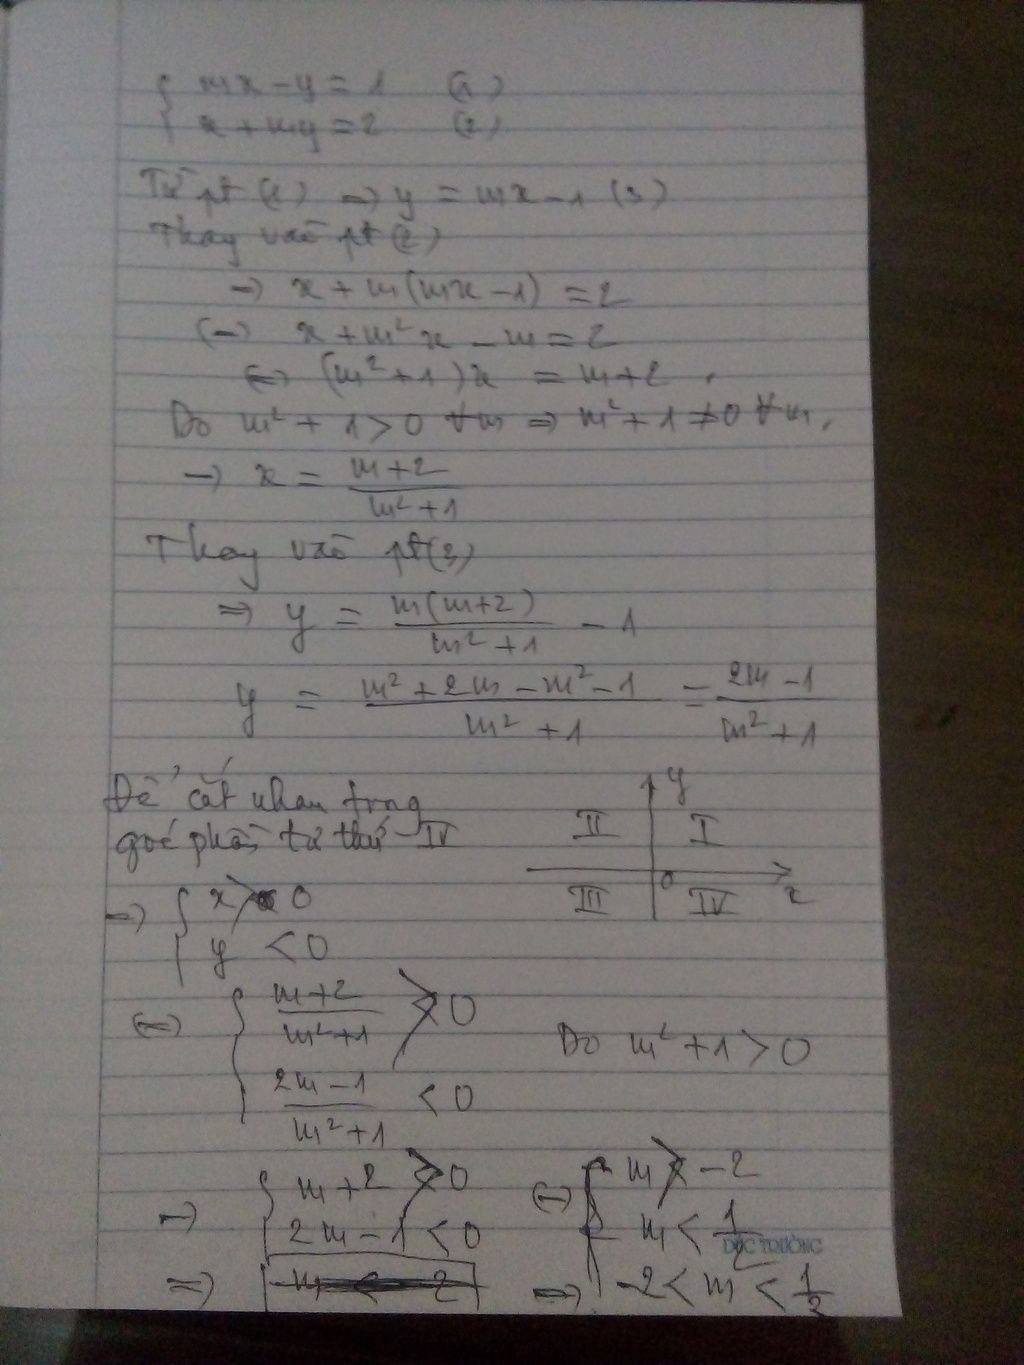 { mx - y = 1 (1)
x + my = 2 (2)
Từ pt (1) => y = mx - 1 (3)
Thay vào pt (2)
=> x + m(mx - 1) = 2
<=> x + m² x - m = 2
<=> (m² + 1)x = m + 2 .
Do m² + 1 > 0 ∀m => m² + 1 ≠ 0 ∀m.
=> x = (m + 2)/(m² + 1)
Thay vào pt (3)
=> y = m(m+2)/(m² + 1) - 1
y = (m² + 2m - m² - 1)/(m² + 1) = (2m - 1)/(m² + 1)
Để cắt nhau trong
góc phần tư thứ IV
y
II I
0 x
III IV
=> { x > 0
y < 0
<=> { (m+2)/(m²+1) > 0
(2m - 1)/(m² + 1) < 0
Do m² + 1 > 0
=> { m + 2 > 0
2m - 1 < 0
<=> { m > -2
m < 1/2
ĐỨC TRƯỜNG
=> => -2 < m < 1/2